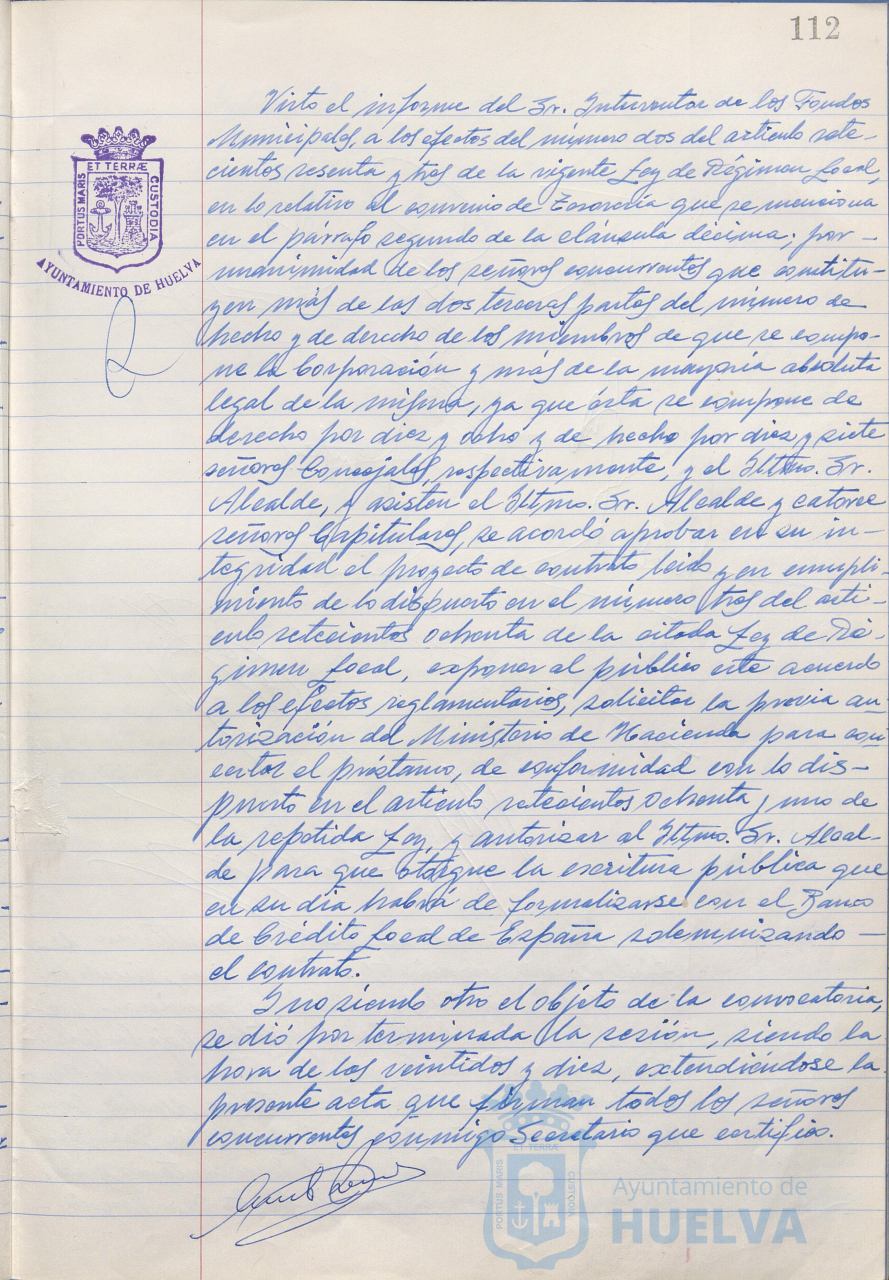 112
Visto el informe del Sr. Interventor de los Fondos
Municipales, a los efectos del número dos del artículo sete-
cientos sesenta y tres de la vigente Ley de Régimen Local,
en lo relativo al convenio de Tesorería que se menciona
en el párrafo segundo de la cláusula décima; por
unanimidad de los señores concurrentes que constitu-
yen más de las dos terceras partes del número de
hecho y de derecho de los miembros de que se compo-
ne la Corporación y más de la mayoría absoluta
legal de la misma, ya que ésta se compone de
derecho por diez y ocho y de hecho por diez y siete
señores Concejales, respectivamente, y el Iltmo. Sr.
Alcalde, y asisten el Iltmo. Sr. Alcalde y catorce
señores Capitulares, se acordó aprobar en su in-
tegridad el proyecto de contrato leido y en cumpli-
miento de lo dispuesto en el número tres del artí-
culo setecientos ochenta de la citada Ley de Ré-
gimen Local, exponer al público este acuerdo
a los efectos reglamentarios, solicitar la previa au-
torización del Ministerio de Hacienda para con-
certar el préstamo, de conformidad con lo dis-
puesto en el artículo setecientos ochenta y uno de
la repetida Ley, y autorizar al Iltmo. Sr. Alcal-
de para que otorgue la escritura pública que
en su día habrá de formalizarse con el Banco
de Crédito Local de España solemnizando
el contrato.
Y no siendo otro el objeto de la convocatoria,
se dió por terminada la sesión, siendo la
hora de las veintidos y diez, extendiéndose la
presente acta que firman todos los señores
concurrentes conmigo Secretario que certifico.
PORTUS MARIS ET TERRÆ CUSTODIA
AYUNTAMIENTO DE HUELVA
PORTUS MARIS ET TERRÆ CUSTODIA
Ayuntamiento de
HUELVA